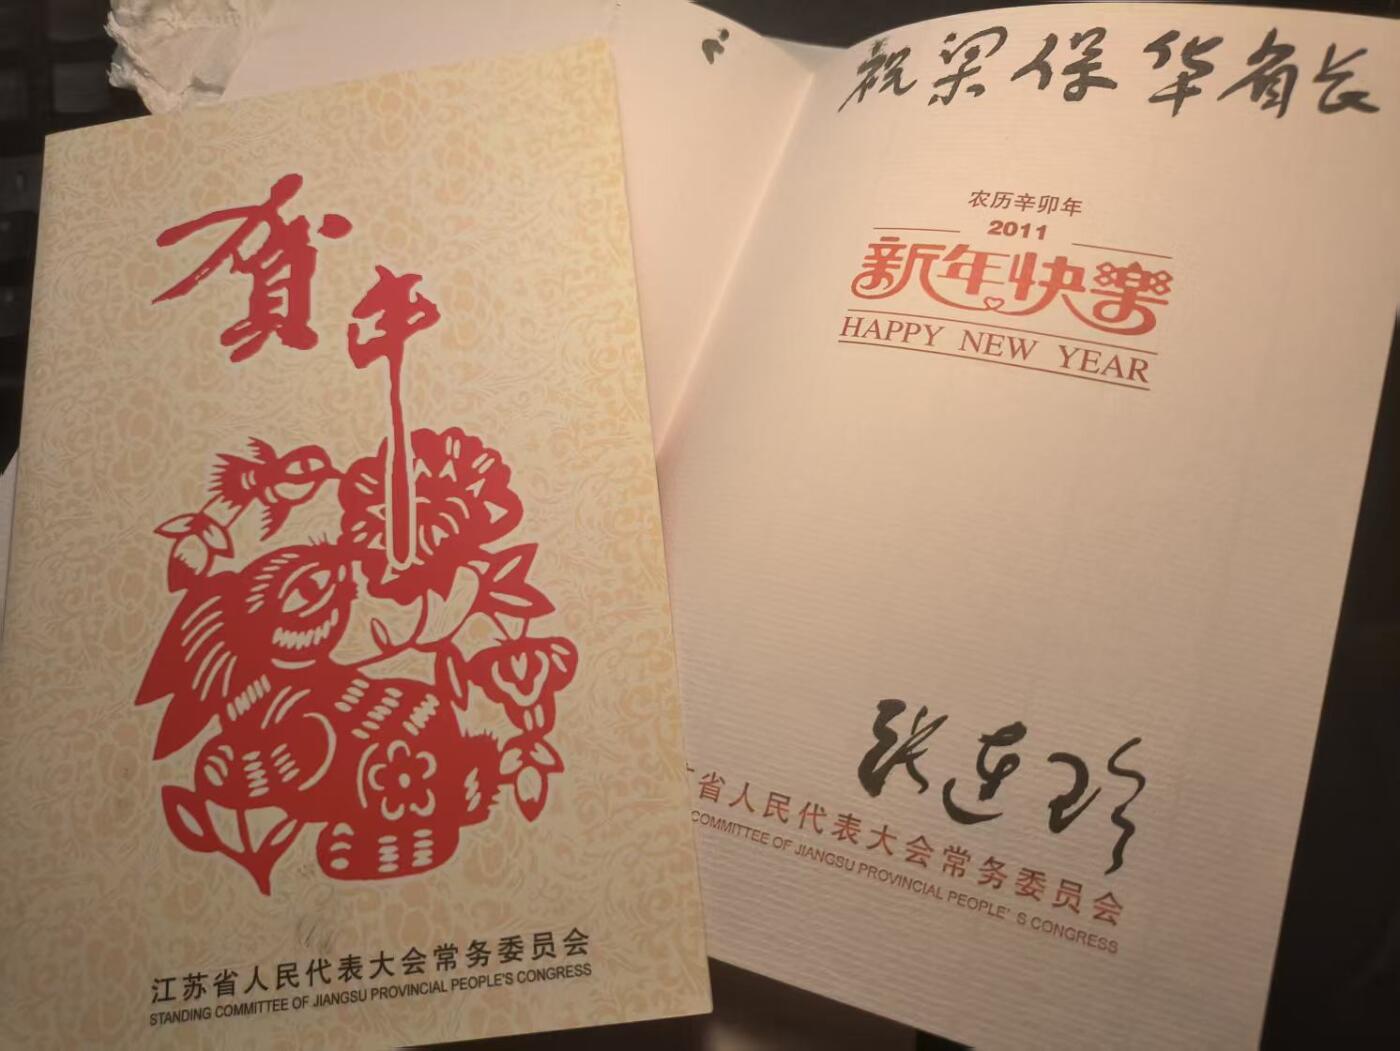 贺年
江苏省人民代表大会常务委员会
STANDING COMMITTEE OF JIANGSU PROVINCIAL PEOPLE'S CONGRESS
祝梁保华省长
农历辛卯年
2011
新年快樂
HAPPY NEW YEAR
张连珍
省人民代表大会常务委员会
COMMITTEE OF JIANGSU PROVINCIAL PEOPLE'S CONGRESS